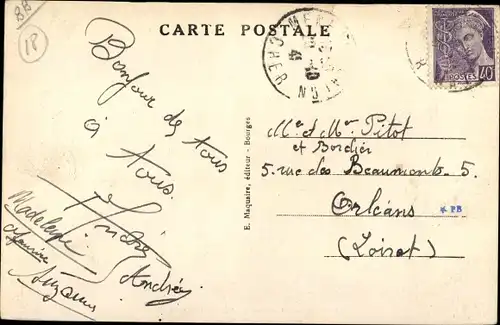 BB
18
CARTE POSTALE
CHER
41
POSTES
40
Bonjour de tous
à tous.
André
Madeleine
Suzanne
Andrée
E. Maquaire, éditeur - Bourges
Me et Mr Pitot
et Bordier
5 rue des Beaumonts. 5.
Orléans
* PB
(Loiret)